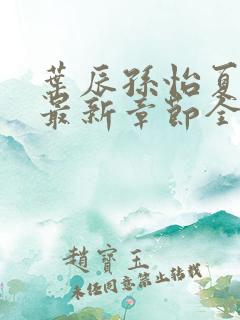 葉辰孫怡夏
最新章節全
趙寶玉
未任同意禁止轉載